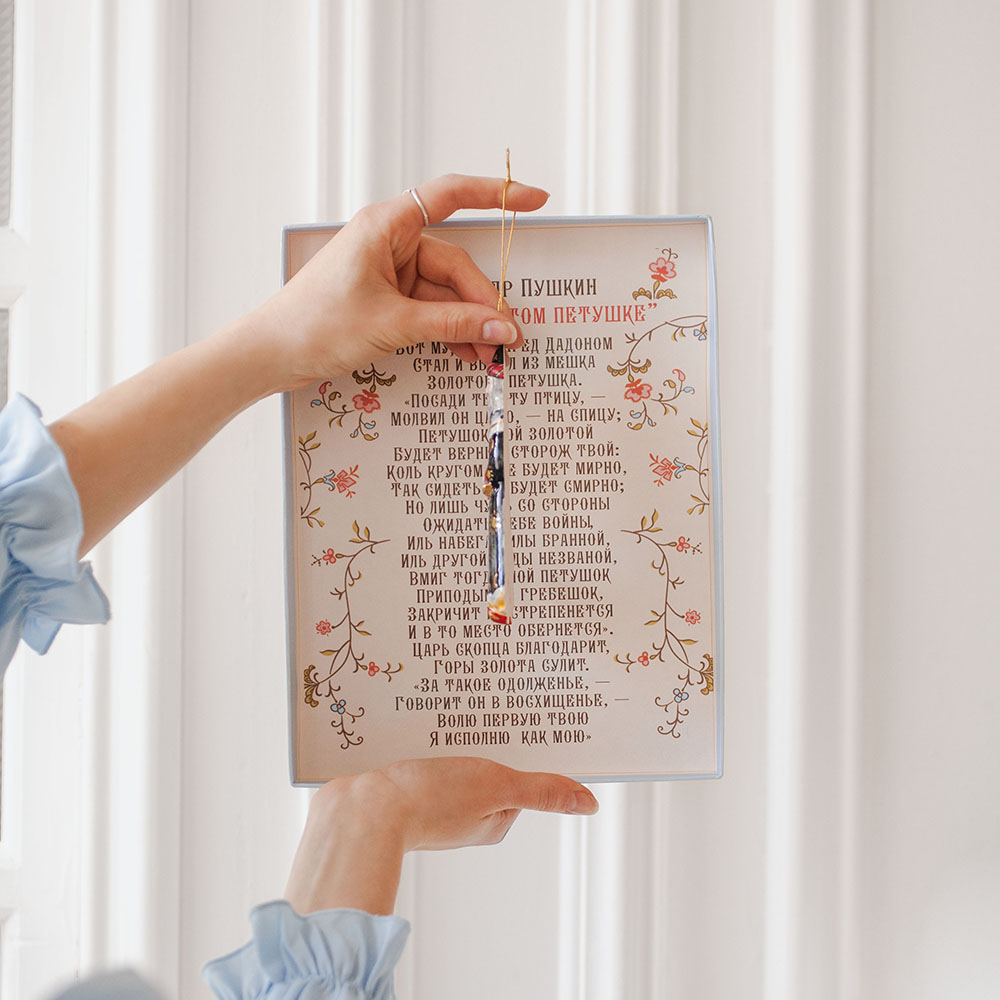 Пушкин
петушке"
Дадоном
Стал и из мешка
петушка.
«Посади птицу, —
Молвил он — на спицу;
Петушок золотой
Будет сторож твой:
Коль кругом будет мирно,
Так сидеть будет смирно;
Но лишь со стороны
Ожидать войны,
Иль бранной,
Иль другой незваной,
Вмиг петушок
гребешок,
Закричит
И в то место обернется».
Царь скопца благодарит,
Горы золота сулит.
«За такое одолженье, —
Говорит он в восхищенье, —
Волю первую твою
Я исполню как мою»